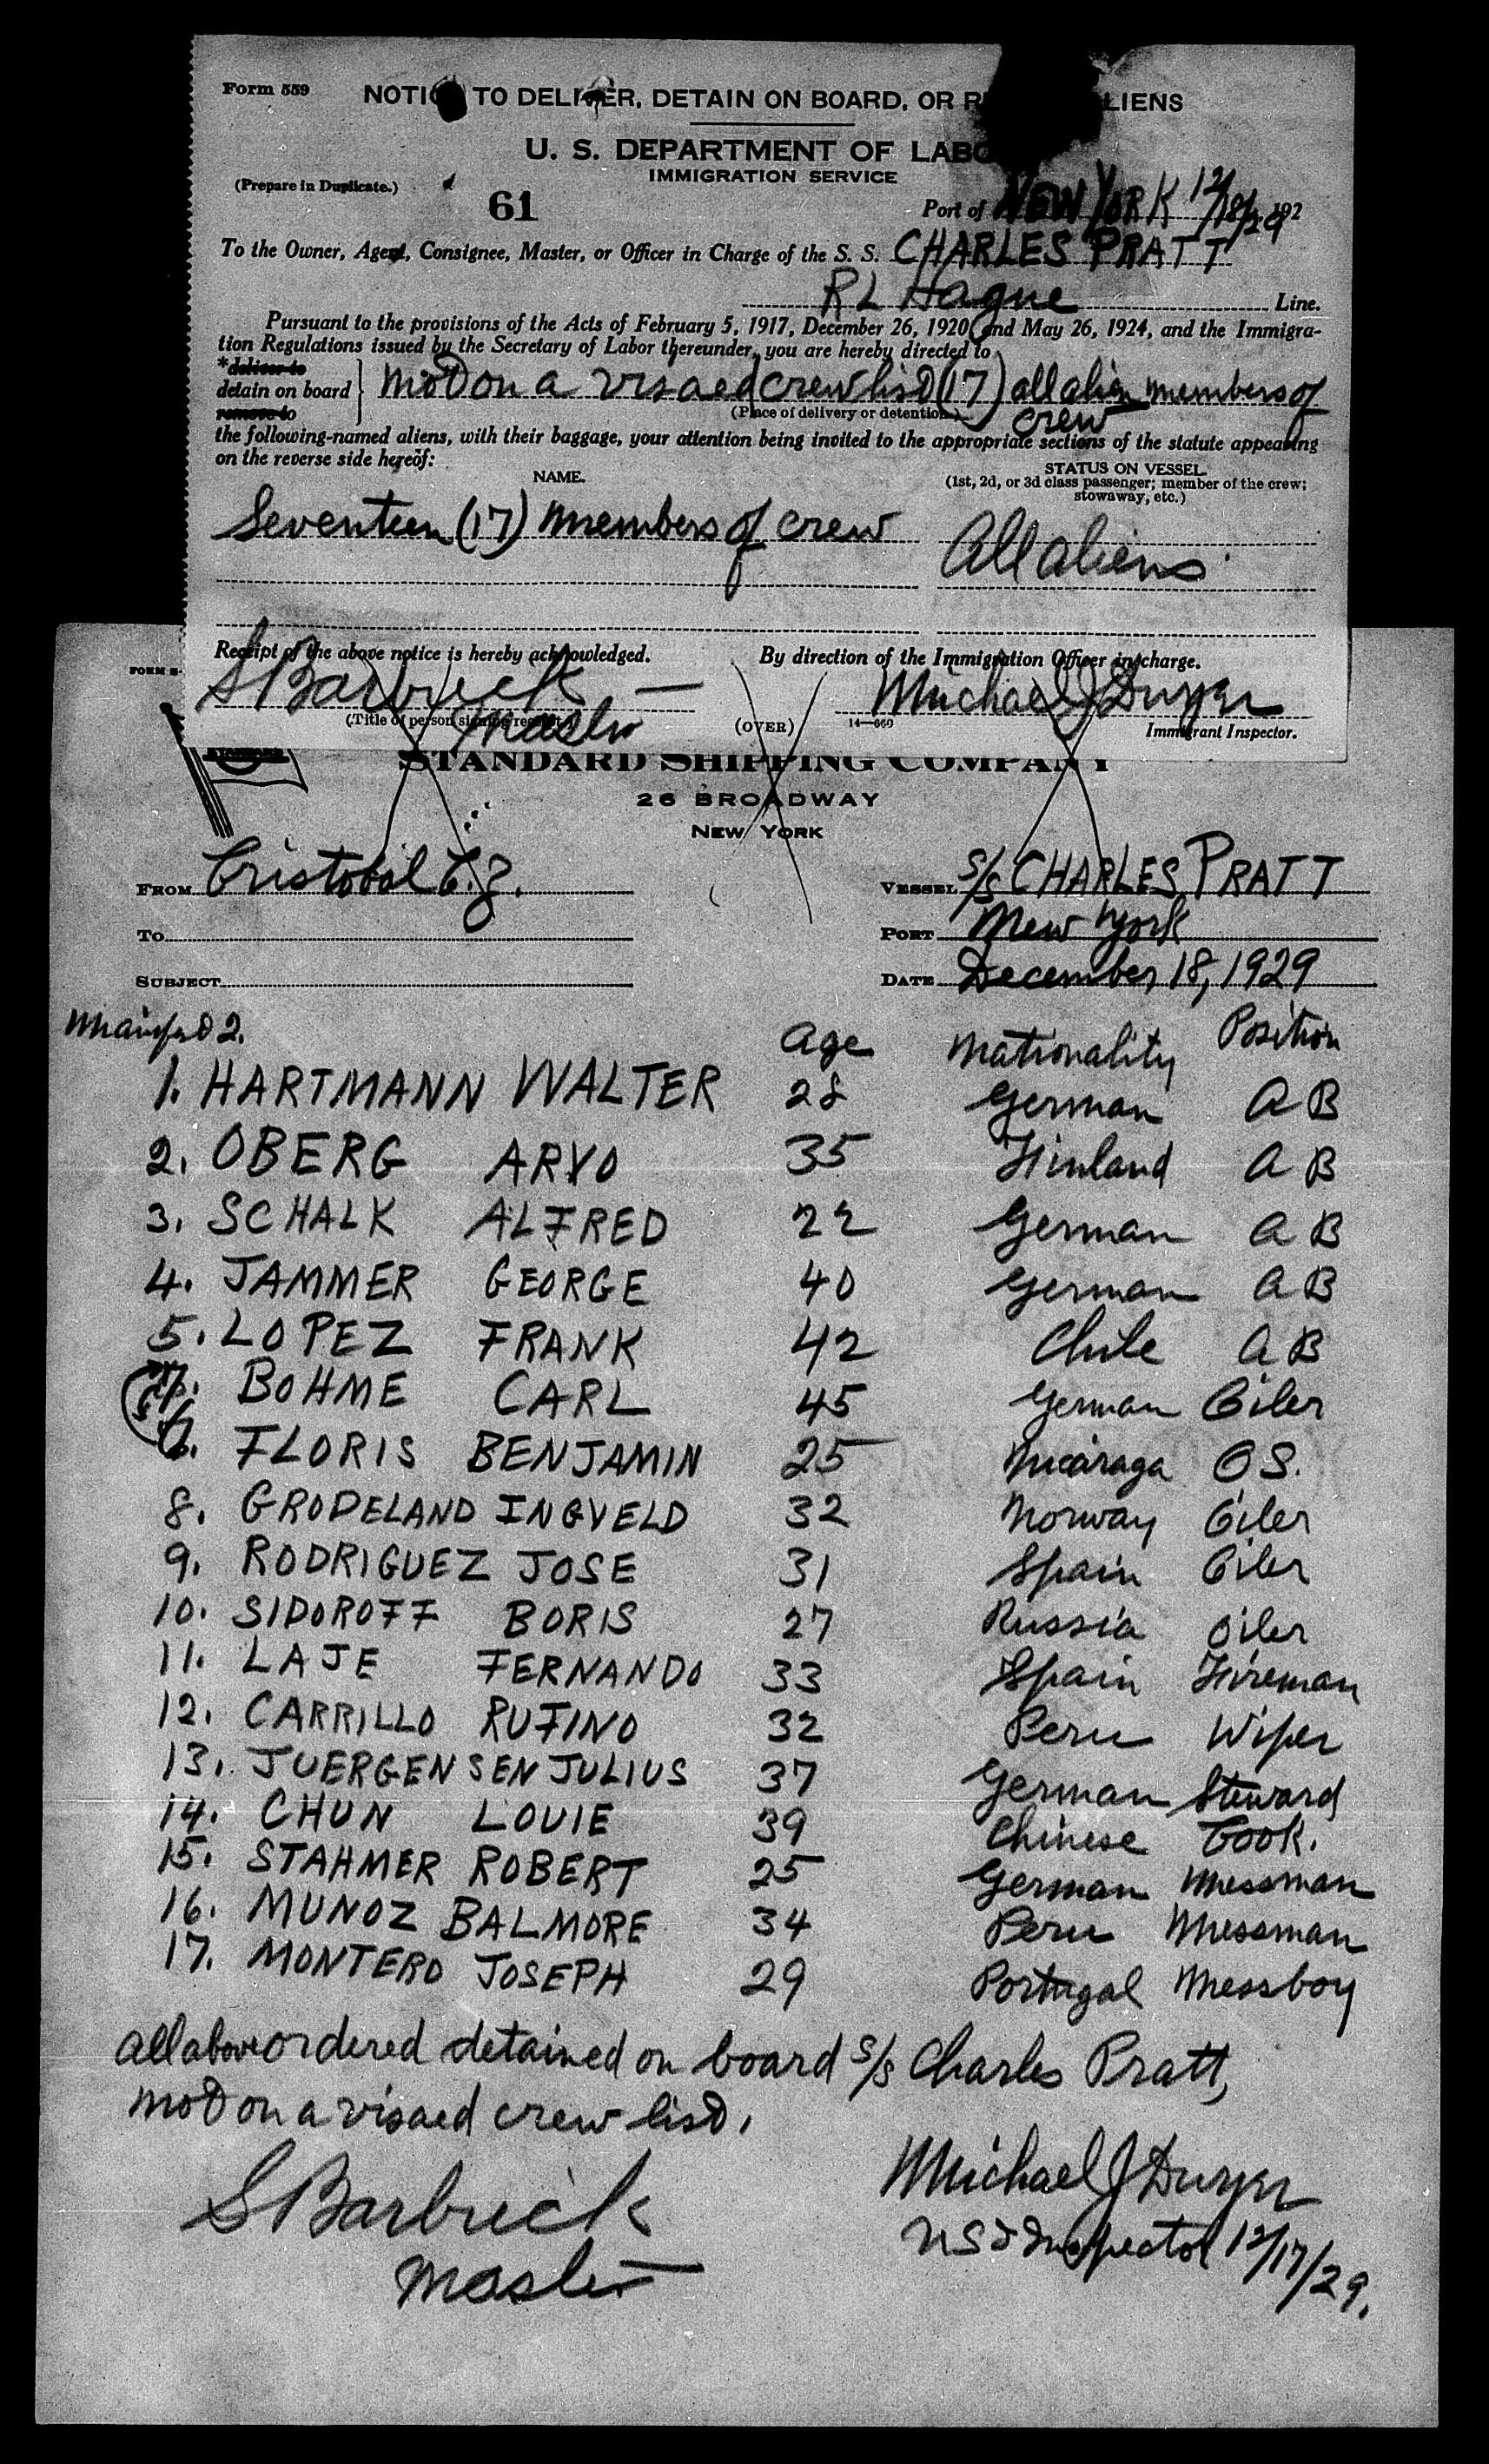 Form 559
NOTI TO DELIVER, DETAIN ON BOARD, OR R LIENS
U. S. DEPARTMENT OF LABO
IMMIGRATION SERVICE
(Prepare in Duplicate.)
61
Port of NEW YORK 12/18/29 192
To the Owner, Agent, Consignee, Master, or Officer in Charge of the S. S. CHARLES PRATT
R L Hague Line.
Pursuant to the provisions of the Acts of February 5, 1917, December 26, 1920, and May 26, 1924, and the Immigra-
tion Regulations issued by the Secretary of Labor thereunder, you are hereby directed to
*deliver to
detain on board
remove to
not on a visaed crew list (17) all alien members of
crew
(Place of delivery or detention.)
the following-named aliens, with their baggage, your attention being invited to the appropriate sections of the statute appearing
on the reverse side hereof:
NAME.
STATUS ON VESSEL
(1st, 2d, or 3d class passenger; member of the crew;
stowaway, etc.)
Seventeen (17) members of crew
All aliens
Receipt of the above notice is hereby acknowledged.
By direction of the Immigration Officer in charge.
S Barbrick
Michael J Dwyer
(Title of person signing receipt.)
Master
(OVER)
14—660
Immigrant Inspector.
FORM S-
STANDARD SHIPPING COMPANY
26 BROADWAY
NEW YORK
FROM Cristobal C.Z.
VESSEL S/S CHARLES PRATT
TO
PORT New York
SUBJECT
DATE December 18, 1929
2.
Age Nationality Position
1. HARTMANN WALTER 28 German A B
2. OBERG ARVO 35 Finland A B
3. SCHALK ALFRED 22 German A B
4. JAMMER GEORGE 40 German A B
5. LOPEZ FRANK 42 Chile A B
BOHME CARL 45 German Oiler
6. FLORIS BENJAMIN 25 Nicaraga O S.
8. GRODELAND INGVELD 32 Norway Oiler
9. RODRIGUEZ JOSE 31 Spain Oiler
10. SIDOROFF BORIS 27 Russia Oiler
11. LAJE FERNANDO 33 Spain Fireman
12. CARRILLO RUFINO 32 Peru Wiper
13. JUERGENSEN JULIUS 37 German Steward
14. CHUN LOUIE 39 Chinese Cook.
15. STAHMER ROBERT 25 German Messman
16. MUNOZ BALMORE 34 Peru Messman
17. MONTERO JOSEPH 29 Portugal Messboy
all above ordered detained on board S/S Charles Pratt,
not on a visaed crew list.
S Barbrick
Michael J Dwyer
Master
US I Inspector 12/17/29.